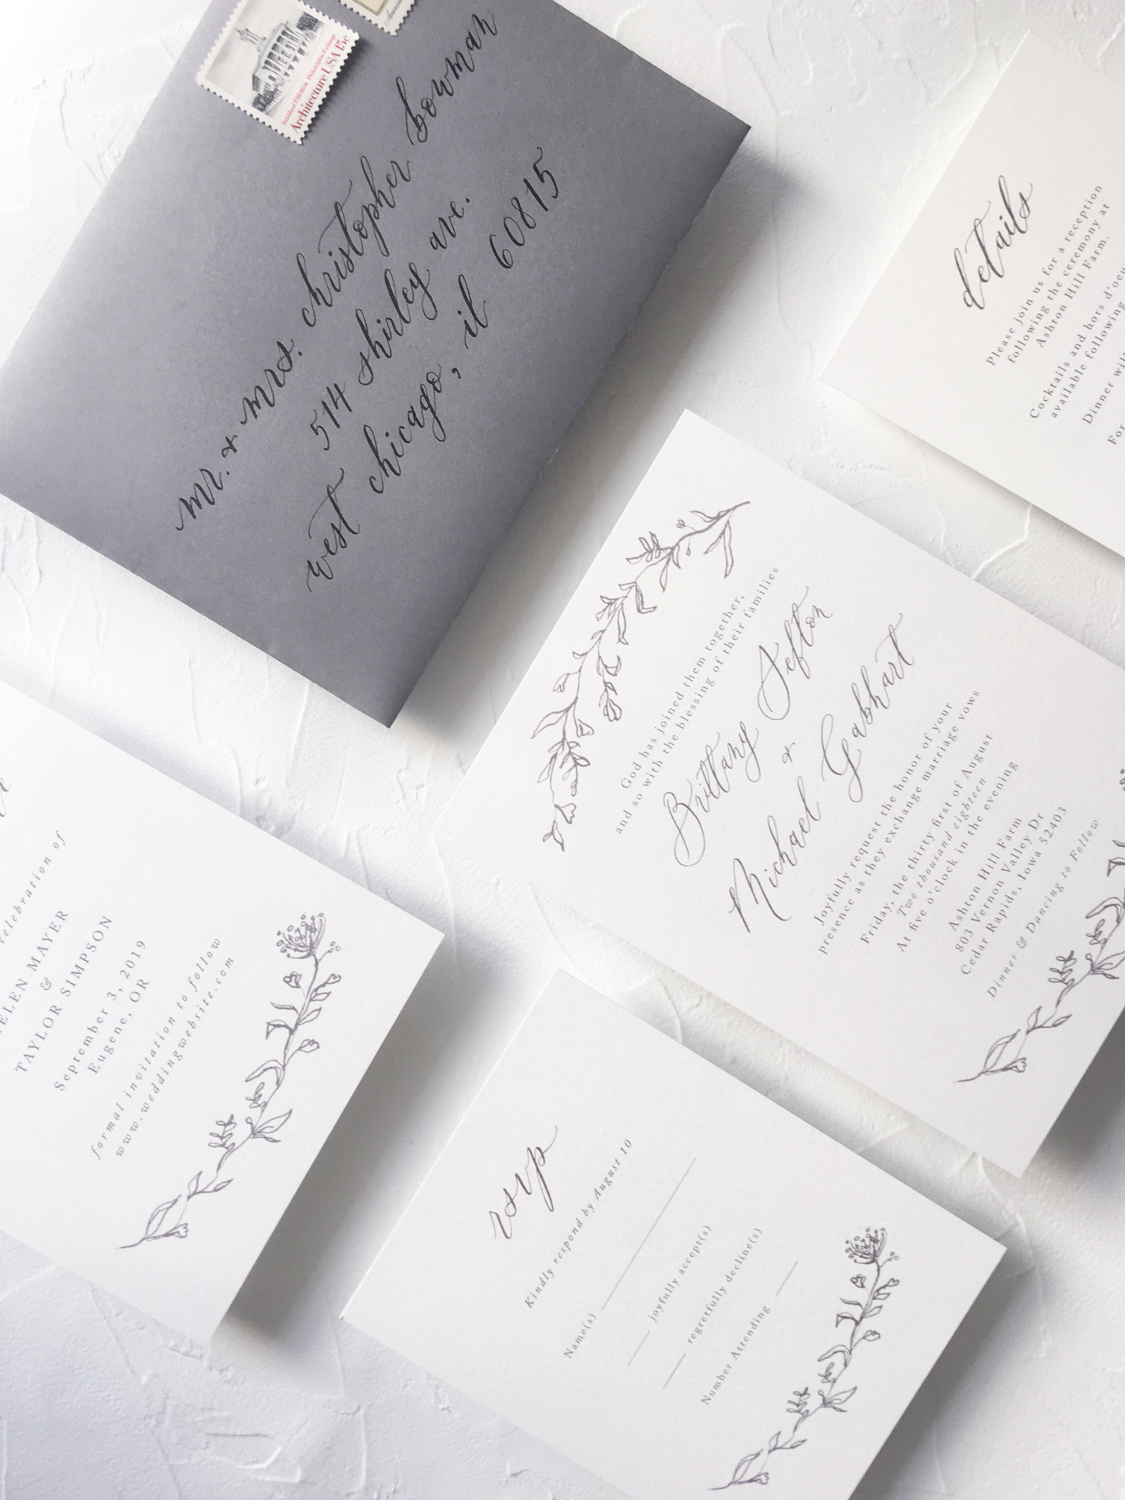 Architecture USA 15c
mr. & mrs. christopher bowman
514 shirley ave.
west chicago, il 60815
details
Please join us for a reception
following the ceremony at
Ashton Hill Farm.
Cocktails and hors d'oeu
available following
Dinner wil
For
God has joined them together,
and so with the blessing of their families
Brittany Sefton
&
Michael Gabhart
Joyfully request the honor of your
presence as they exchange marriage vows
Friday, the thirty first of August
Two thousand eighteen
At five o'clock in the evening
Ashton Hill Farm
803 Vernon Valley Dr
Cedar Rapids, Iowa 52403
Dinner & Dancing to Follow
celebration of
ELEN MAYER
&
TAYLOR SIMPSON
September 3, 2019
Eugene, OR
formal invitation to follow
www.weddingwebsite.com
rsvp
Kindly respond by August 10
Name(s)
joyfully accept(s)
regretfully decline(s)
Number Attending